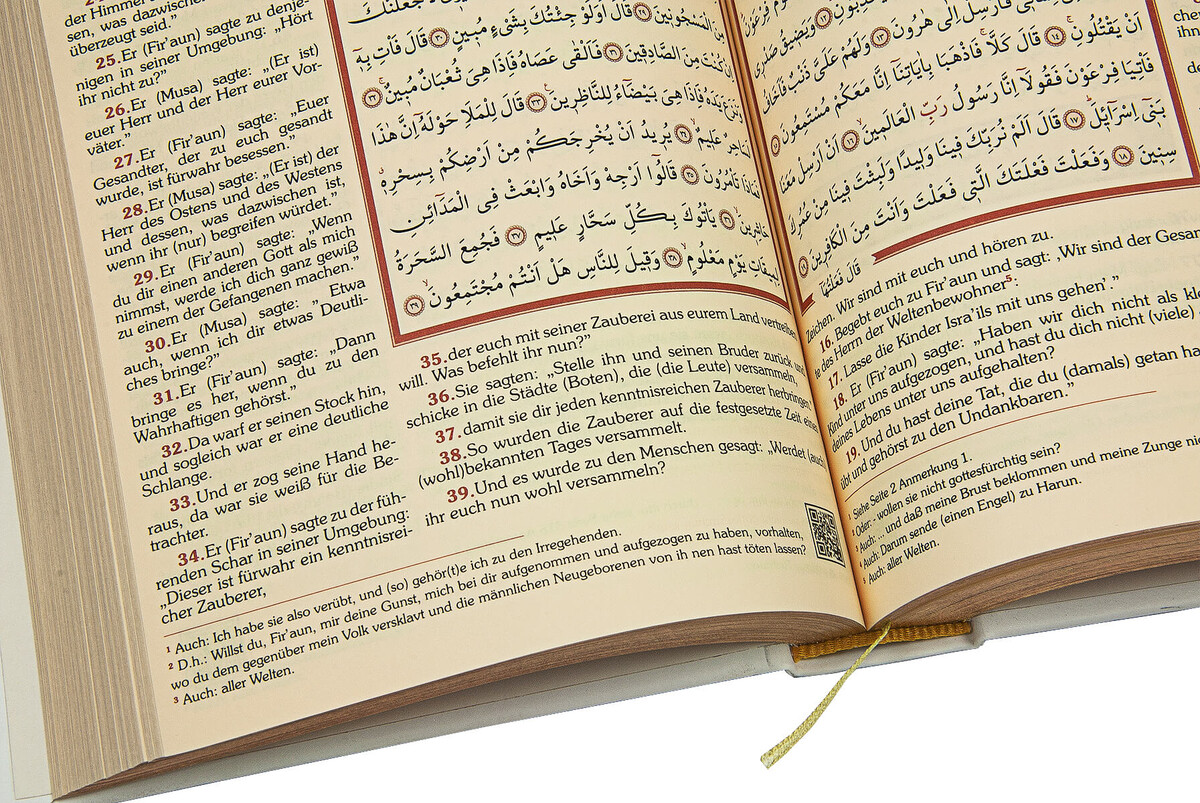 der Himmel
sen, was dazwischen
überzeugt seid."
25.Er (Fir'aun) sagte zu denje-
nigen in seiner Umgebung: „Hört
ihr nicht zu?"
26.Er (Musa) sagte: „(Er ist)
euer Herr und der Herr eurer Vor-
väter."
27.Er (Fir'aun) sagte: „Euer
Gesandter, der zu euch gesandt
wurde, ist fürwahr besessen."
28.Er (Musa) sagte: „(Er ist) der
Herr des Ostens und des Westens
und dessen, was dazwischen ist,
wenn ihr (nur) begreifen würdet."
29.Er (Fir'aun) sagte: „Wenn
du dir einen anderen Gott als mich
nimmst, werde ich dich ganz gewiß
zu einem der Gefangenen machen."
30.Er (Musa) sagte: „ Etwa
auch, wenn ich dir etwas Deutli-
ches bringe?"
31.Er (Fir'aun) sagte: „Dann
bringe es her, wenn du zu den
Wahrhaftigen gehörst."
32.Da warf er seinen Stock hin,
und sogleich war er eine deutliche
Schlange.
33.Und er zog seine Hand he-
raus, da war sie weiß für die Be-
trachter.
34.Er (Fir'aun) sagte zu der füh-
renden Schar in seiner Umgebung:
„Dieser ist fürwahr ein kenntnisrei-
cher Zauberer,
مِنَ الْمَسْجُونِينَ ﴿٢٩﴾ قَالَ اَوَلَوْ جِئْتُكَ بِشَيْءٍ مُبِينٍ ﴿٣٠﴾ قَالَ فَأْتِ بِهٖ
اِنْ كُنْتَ مِنَ الصَّادِقِينَ ﴿٣١﴾ فَاَلْقٰى عَصَاهُ فَاِذَا هِيَ ثُعْبَانٌ مُبِينٌ ﴿٣٢﴾
وَنَزَعَ يَدَهُ فَاِذَا هِيَ بَيْضَاءُ لِلنَّاظِرِينَ ﴿٣٣﴾ قَالَ لِلْمَلَاِ حَوْلَهُ اِنَّ هٰذَا
لَسَاحِرٌ عَلِيمٌ ﴿٣٤﴾ يُرِيدُ اَنْ يُخْرِجَكُمْ مِنْ اَرْضِكُمْ بِسِحْرِهٖ
فَمَاذَا تَأْمُرُونَ ﴿٣٥﴾ قَالُوا اَرْجِهْ وَاَخَاهُ وَابْعَثْ فِي الْمَدَائِنِ
حَاشِرِينَ ﴿٣٦﴾ يَأْتُوكَ بِكُلِّ سَحَّارٍ عَلِيمٍ ﴿٣٧﴾ فَجُمِعَ السَّحَرَةُ
لِمِيقَاتِ يَوْمٍ مَعْلُومٍ ﴿٣٨﴾ وَقِيلَ لِلنَّاسِ هَلْ اَنْتُمْ مُجْتَمِعُونَ ﴿٣٩﴾
35.der euch mit seiner Zauberei aus eurem Land vertreiben
will. Was befehlt ihr nun?"
36.Sie sagten: „Stelle ihn und seinen Bruder zurück und
schicke in die Städte (Boten), die (die Leute) versammeln,
37.damit sie dir jeden kenntnisreichen Zauberer herbringen."
38.So wurden die Zauberer auf die festgesetzte Zeit eines
(wohl)bekannten Tages versammelt.
39.Und es wurde zu den Menschen gesagt: „Werdet (auch)
ihr euch nun wohl versammeln?
1 Auch: Ich habe sie also verübt, und (so) gehör(t)e ich zu den Irregehenden.
2 D.h.: Willst du, Fir'aun, mir deine Gunst, mich bei dir aufgenommen und aufgezogen zu haben, vorhalten,
wo du dem gegenüber mein Volk versklavt und die männlichen Neugeborenen von ih nen hast töten lassen?
3 Auch: aller Welten.
اَنْ يَقْتُلُونِ ﴿١٤﴾ قَالَ كَلَّا فَاذْهَبَا بِاٰيَاتِنَا اِنَّا مَعَكُمْ مُسْتَمِعُونَ ﴿١٥﴾
فَأْتِيَا فِرْعَوْنَ فَقُولَا اِنَّا رَسُولُ رَبِّ الْعَالَمِينَ ﴿١٦﴾ اَنْ اَرْسِلْ مَعَنَا
بَنِي اِسْرَائِيلَ ﴿١٧﴾ قَالَ اَلَمْ نُرَبِّكَ فِينَا وَلِيدًا وَلَبِثْتَ فِينَا مِنْ عُمُرِكَ
سِنِينَ ﴿١٨﴾ وَفَعَلْتَ فَعْلَتَكَ الَّتِي فَعَلْتَ وَاَنْتَ مِنَ الْكَافِرِينَ ﴿١٩﴾
قَالَ فَعَلْتُهَا
Zeichen. Wir sind mit euch und hören zu.
16. Begebt euch zu Fir'aun und sagt: ‚Wir sind der Gesan
te des Herrn der Weltenbewohner5:
17. Lasse die Kinder Isra'ils mit uns gehen'."
18. Er (Fir'aun) sagte: „Haben wir dich nicht als kle
Kind unter uns aufgezogen, und hast du dich nicht (viele)
deines Lebens unter uns aufgehalten?
19. Und du hast deine Tat, die du (damals) getan ha
übt und gehörst zu den Undankbaren."
1 Siehe Seite 2 Anmerkung 1.
2 Oder: - wollen sie nicht gottesfürchtig sein?
3 Auch: ... und daß meine Brust beklommen und meine Zunge ni
4 Auch: Darum sende (einen Engel) zu Harun.
5 Auch: aller Welten.